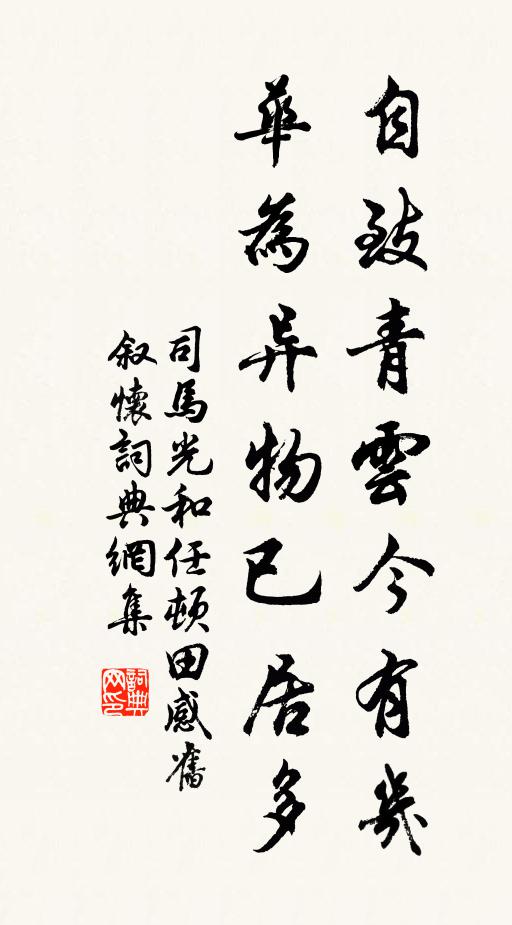 自致青雲今有幾
華為异物已居多
司馬光和任頓田感舊
叙懷詞典網集
詞典網印